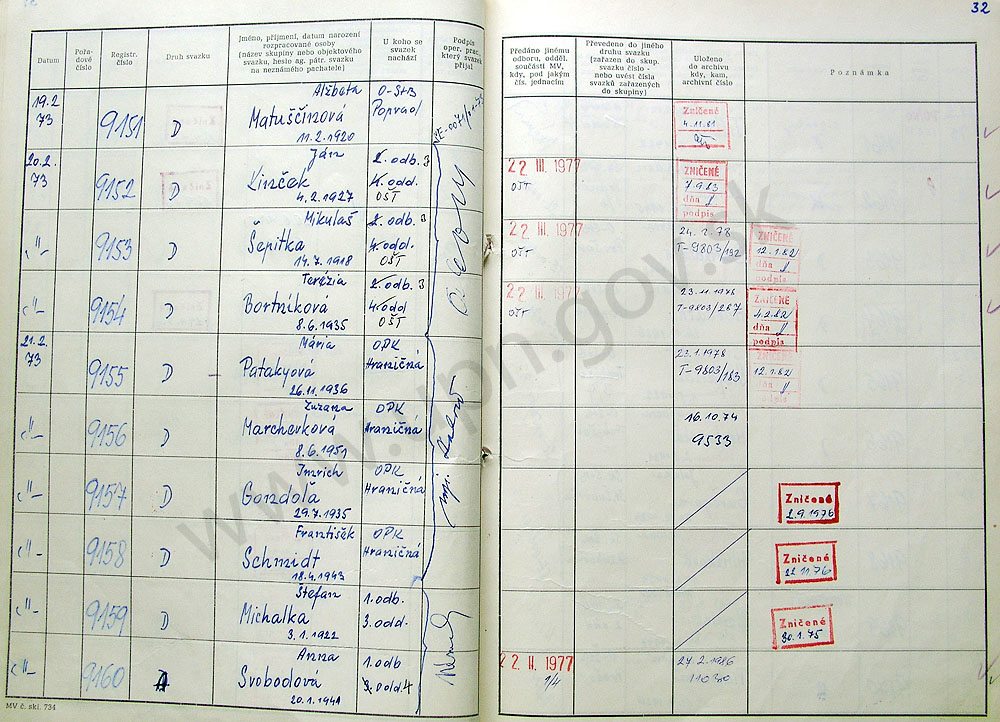 32
Datum
Pořa-
dové
číslo
Registr.
číslo
Druh svazku
Jméno, příjmení, datum narození
rozpracované osoby
(název skupiny nebo objektového
svazku, heslo ag. pátr. svazku
na neznámého pachatele)
U koho se
svazek
nachází
Podpis
oper. prac.,
který svazek
přijal
Předáno jinému
odboru, odděl.
součásti MV,
kdy, pod jakým
čís. jednacím
Převedeno do jiného
druhu svazku
(zařazen do skup.
svazku číslo -
nebo uvést čísla
svazků zařazených
do skupiny)
Uloženo
do archivu
kdy, kam,
archivní číslo
Poznámka
19.2
73
9151
D
Alžbeta
Matuščinová
11.2.1920
O-ŠtB
Poprad
Zničené
4.11.81
20.2.
73
9152
D
Ján
Linček
4.2.1927
2. odb. 3
4. odd.
OŠT
22 III. 1977
OŠT
ZNIČENÉ
dňa
podpis
-"-
9153
D
Mikuláš
Šepitka
14.7.1918
2. odb. 3
4. odd.
OŠT
22 III. 1977
OŠT
24.1.78
T-9803/192
ZNIČENÉ
12.1.82
dňa
podpis
-"-
9154
D
Terézia
Bortníková
8.6.1935
2. odb. 3
4. odd
OŠT
22 III. 1977
OŠT
T-9803/267
ZNIČENÉ
4.2.82
dňa
podpis
21.2.
73
9155
D
Mária
Patakyová
26.11.1936
OPK
Hraničná
23.1.1978
T-9803/183
ZNIČENÉ
12.1.82
dňa
podpis
-"-
9156
D
Zuzana
Marchevková
8.6.1951
OPK
Hraničná
16.10.74
9533
-"-
9157
D
Imrich
Gondoľa
29.7.1935
OPK
Hraničná
Zničené
2.9.1976
-"-
9158
D
František
Schmidt
18.4.1943
OPK
Hraničná
Zničené
22.11.76
-"-
9159
D
Štefan
Michalka
3.1.1922
1. odb.
3. odd.
Zničené
30.1.75
-"-
9160
A
Anna
Svobodová
20.1.1941
1. odb
3. odd. 4
22. II. 1977
1/4
27.2.1986
11030
MV č. skl. 734
www.upn.gov.sk